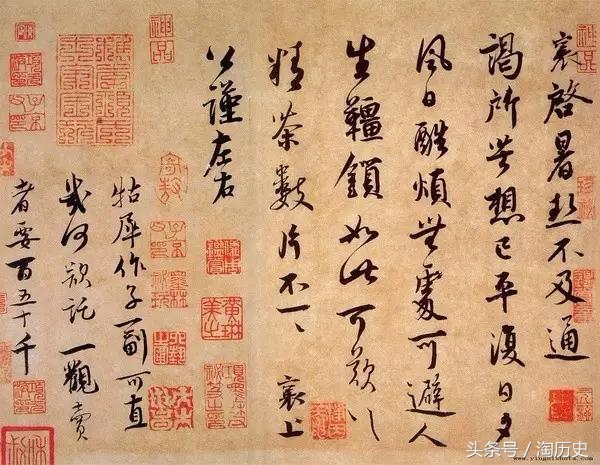 襄啓暑熱不及通
謁所苦想已平復日夕
風日酷煩無處可避人
生韁鎖如此可歎〻
精茶數片不一一 襄上
公謹左右
牯犀作子一副可直
幾何欲託一觀賣
者要百五十千
神品
神品
头条号／淘历史
www.yingbishufa.com